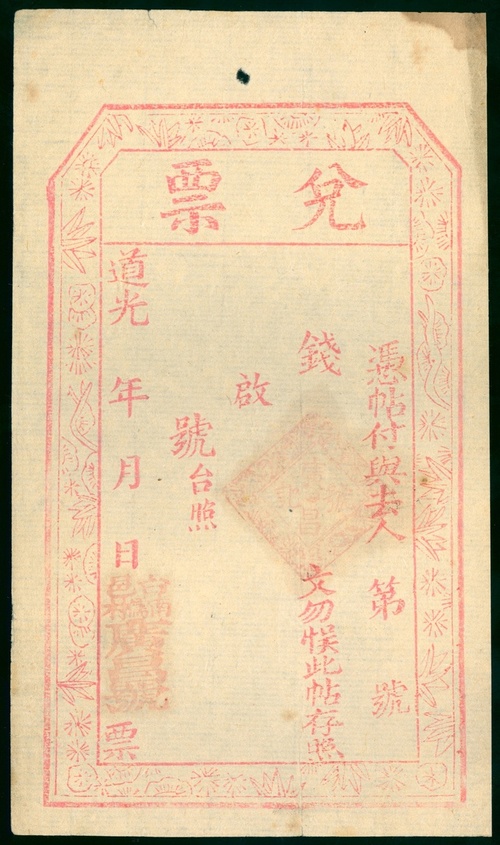 兌票
憑帖付與去人　第　號
錢　文勿悮此帖存照
啟
號台照
道光　年　月　日　票